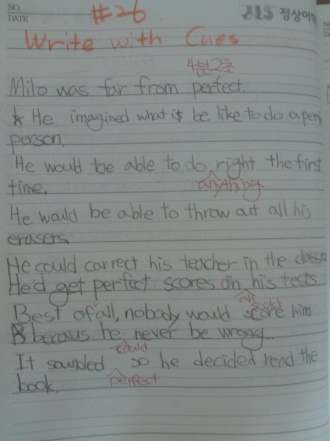 NO.
DATE
#26
JLS 정상어학
Write with Cues
Milo was far from perfect.
* He imagined what it be like to do a
person.
He would be able to do right the first
anything
time.
He would be able to throw out all his
erasers.
He could correct his teacher in the
He'd get perfect scores on his tests
Best of all, nobody would him
becaus he never be wrong.
could
It sounded so he decided read the
perfect
book.